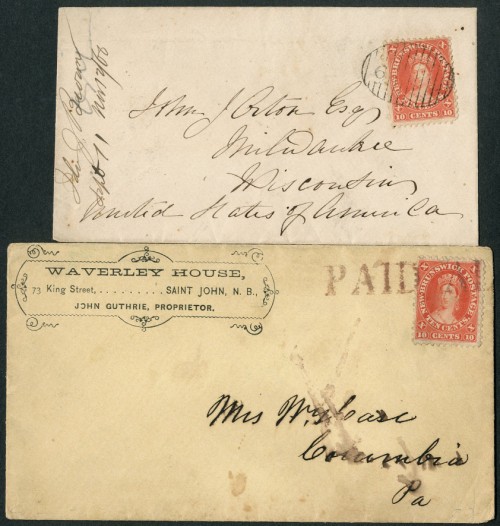 NEW BRUNSWICK POSTAGE
X X
TEN CENTS
10 CENTS 10
John J Orton Esq
Milwaukee
Wisconsin
United States of America
WAVERLEY HOUSE,
73 King Street,.......... SAINT JOHN, N. B.,
JOHN GUTHRIE, PROPRIETOR.
PAID
X X
NEW BRUNSWICK POSTAGE
TEN CENTS
10 CENTS 10
Mrs Wm
Columbia
Pa